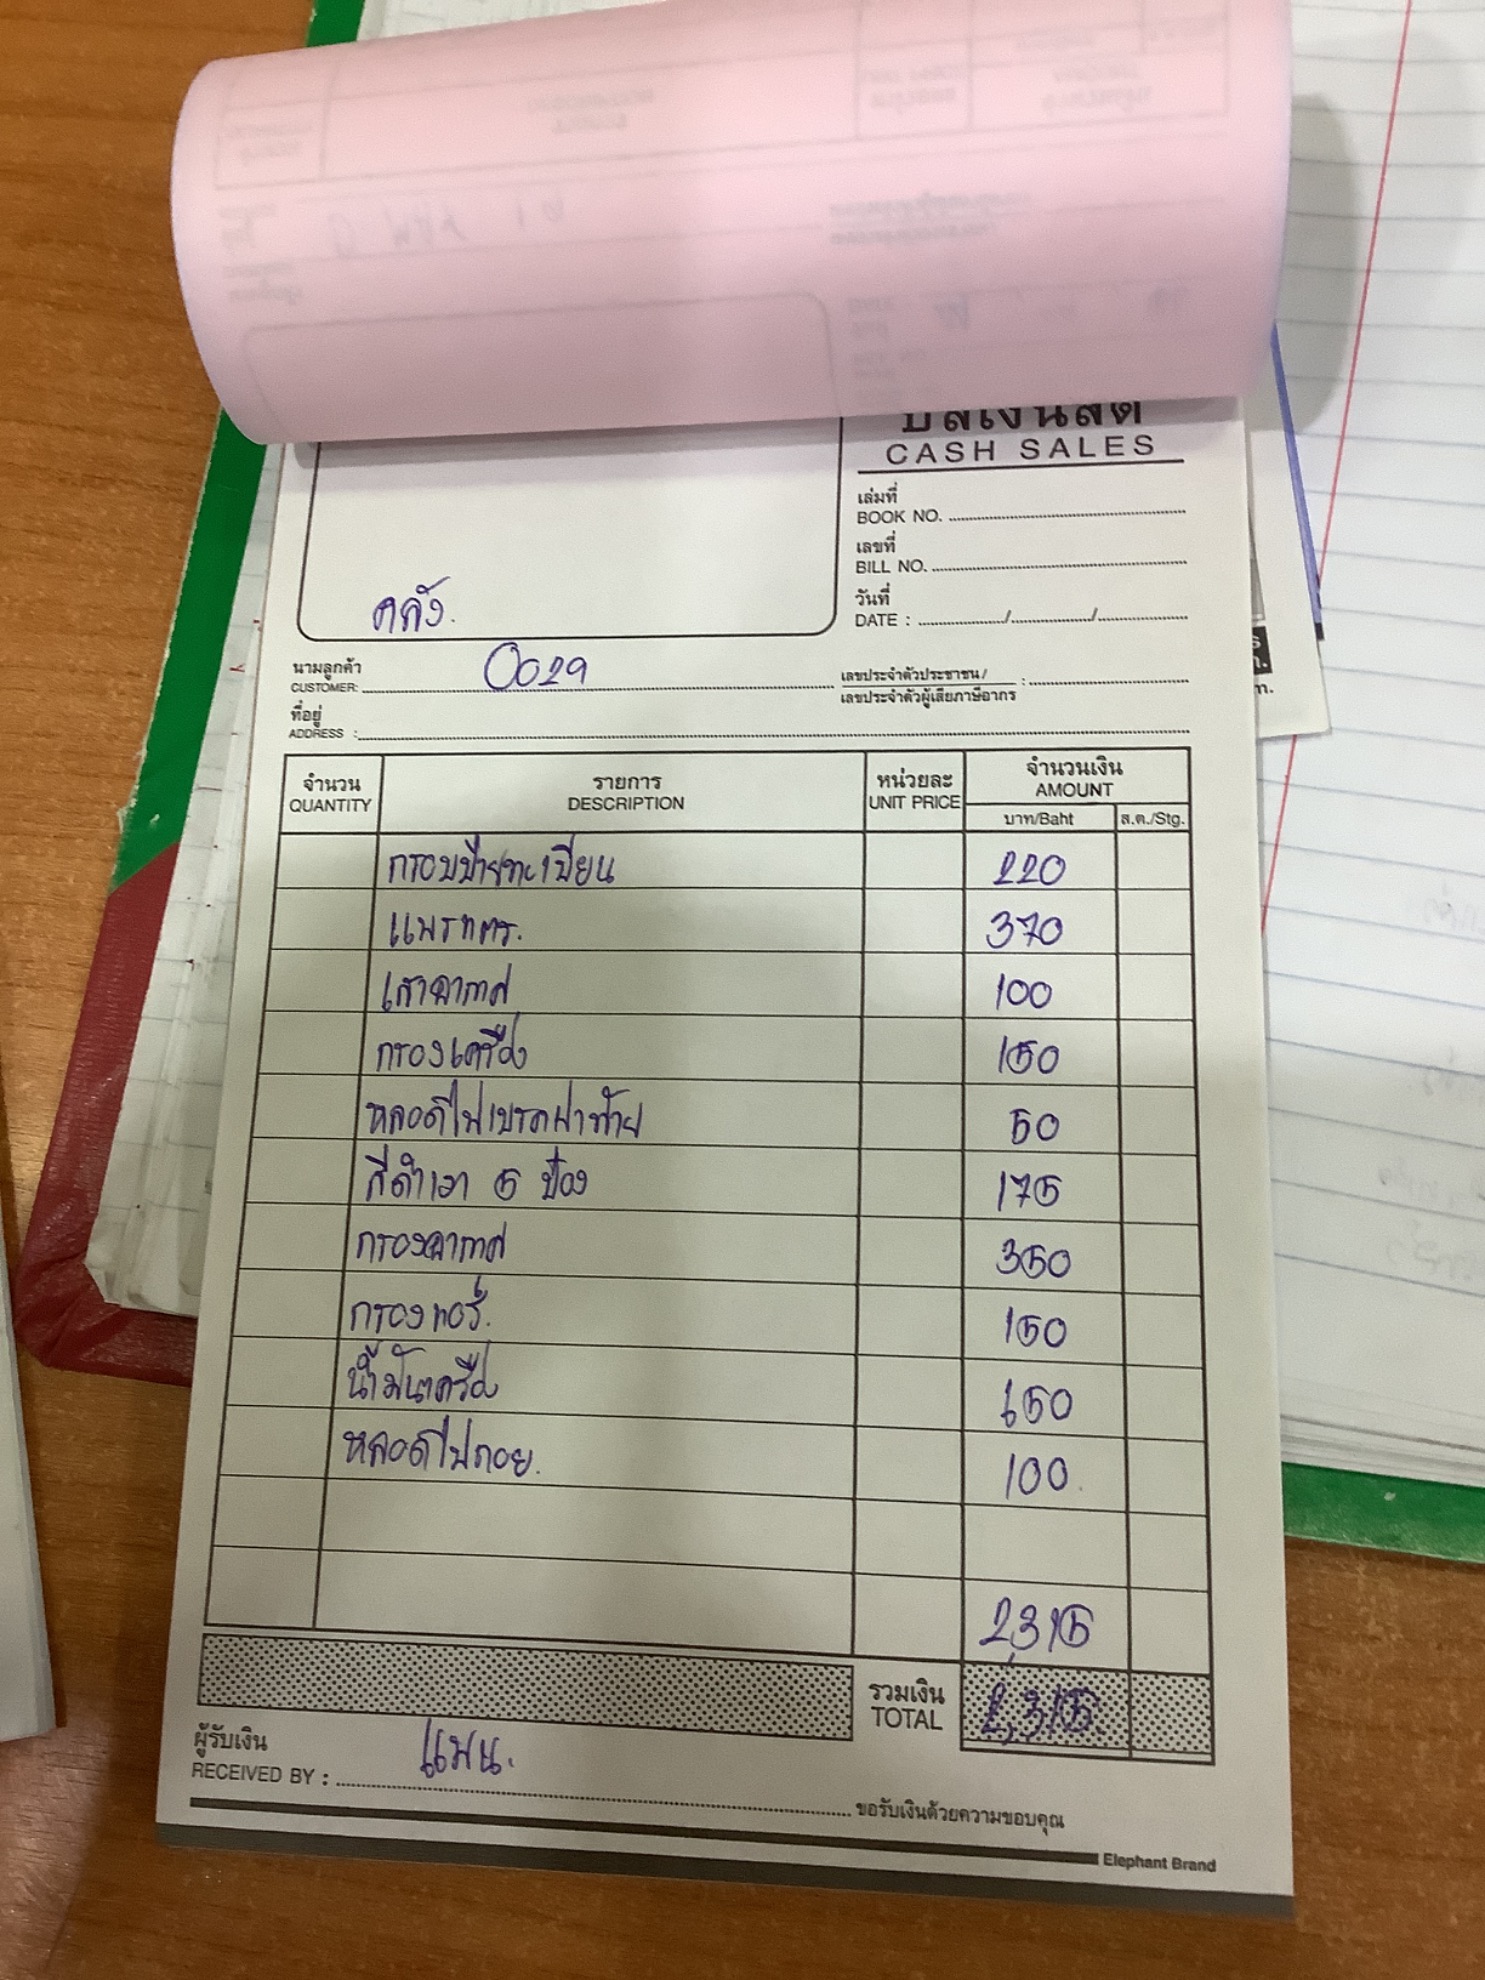 บิลเงินสด
CASH SALES
เล่มที่
BOOK NO.
เลขที่
BILL NO.
วันที่
DATE : / /
คลัง.
นามลูกค้า
CUSTOMER: 0029
เลขประจำตัวประชาชน/
เลขประจำตัวผู้เสียภาษีอากร :
ที่อยู่
ADDRESS :
จำนวน รายการ หน่วยละ จำนวนเงิน
QUANTITY DESCRIPTION UNIT PRICE AMOUNT
บาท/Baht ส.ต./Stg.
กรอบป้ายทะเบียน 220
370
เสาอากาศ 100
กรองเครื่อง 150
หลอดไฟเบรคฝาท้าย 50
สีดำเงา 5 ป๋อง 175
กรองอากาศ 350
กรองแอร์. 150
น้ำมันเครื่อง 650
หลอดไฟถอย. 100
2,315
รวมเงิน
TOTAL 2,315
ผู้รับเงิน
RECEIVED BY : แมน.
ขอรับเงินด้วยความขอบคุณ
Elephant Brand